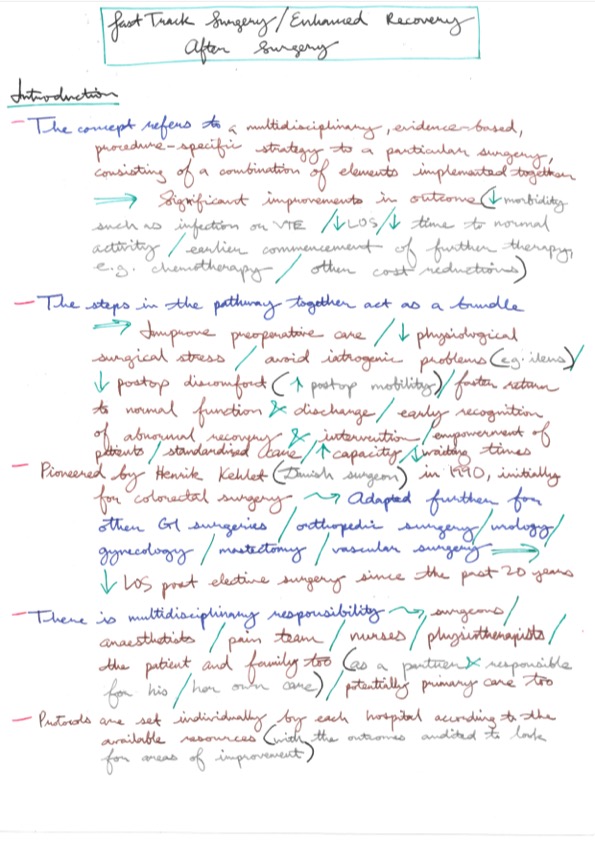 Fast Track Surgery/Enhanced Recovery
After Surgery
Introduction
– The concept refers to a multidisciplinary, evidence-based,
procedure-specific strategy to a particular surgery,
consisting of a combination of elements implemented together
⇒ Significant improvements in outcome (↓morbidity
such as infection or VTE /↓LOS/↓ time to normal
activity / earlier commencement of further therapy,
e.g. chemotherapy / other cost reductions)
– The steps in the pathway together act as a bundle
⇒ Improve preoperative care /↓ physiological
surgical stress / avoid iatrogenic problems (eg. ileus)/
↓ postop discomfort (↑ postop mobility)/ faster return
to normal function & discharge / early recognition
of abnormal recovery & intervention / empowerment of
patients / standardised care /↑ capacity /↓waiting times
– Pioneered by Henrik Kehlet (Danish surgeon) in 1990, initially
for colorectal surgery ⇝ Adapted further for
other GI surgeries / orthopedic surgery / urology /
gynecology / mastectomy / vascular surgery ⇒
↓ LOS post elective surgery since the past 20 years
– There is multidisciplinary responsibility ⇝ surgeons /
anaesthetists / pain team / nurses / physiotherapists /
the patient and family too (as a partner & responsible
for his / her own care) / potentially primary care too
– Protocols are set individually by each hospital according to the
available resources (with the outcomes audited to look
for areas of improvement)